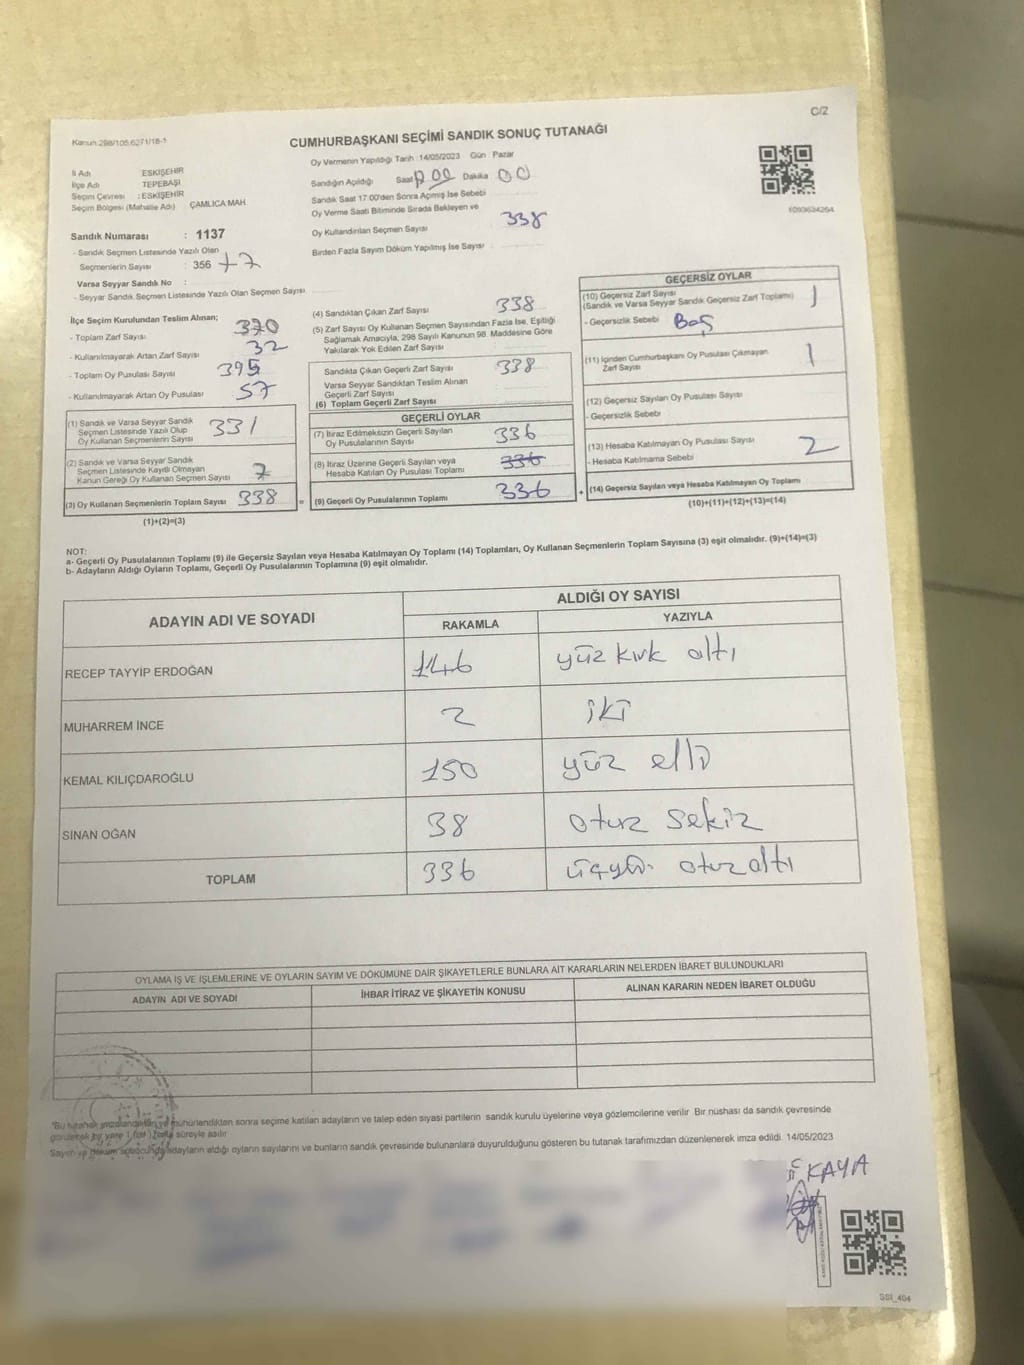 C/2
Kanun:298/105,6271/16-1
CUMHURBAŞKANI SEÇİMİ SANDIK SONUÇ TUTANAĞI
İl Adı ESKİŞEHİR
İlçe Adı TEPEBAŞI
Seçim Çevresi : ESKİŞEHİR
Seçim Bölgesi (Mahalle Adı) ÇAMLICA MAH.
Oy Vermenin Yapıldığı Tarih :14/05/2023 Gün : Pazar
Sandığın Açıldığı Saat Dakika 00
Sandık Saat 17:00'den Sonra Açılmış İse Sebebi
Oy Verme Saati Bitiminde Sırada Bekleyen ve
Oy Kullandırılan Seçmen Sayısı 338
Birden Fazla Sayım Döküm Yapılmış İse Sayısı
Sandık Numarası : 1137
- Sandık Seçmen Listesinde Yazılı Olan
Seçmenlerin Sayısı : 356 +7
Varsa Seyyar Sandık No :
- Seyyar Sandık Seçmen Listesinde Yazılı Olan Seçmen Sayısı
İlçe Seçim Kurulundan Teslim Alınan;
- Toplam Zarf Sayısı 370
- Kullanılmayarak Artan Zarf Sayısı 32
- Toplam Oy Pusulası Sayısı 395
- Kullanılmayarak Artan Oy Pusulası 57
(1) Sandık ve Varsa Seyyar Sandık
Seçmen Listesinde Yazılı Olup
Oy Kullanan Seçmenlerin Sayısı 331
(2) Sandık ve Varsa Seyyar Sandık
Seçmen Listesinde Kayıtlı Olmayan
Kanun Gereği Oy Kullanan Seçmen Sayısı 7
(3) Oy Kullanan Seçmenlerin Toplam Sayısı 338
(1)+(2)=(3)
(4) Sandıktan Çıkan Zarf Sayısı 338
(5) Zarf Sayısı Oy Kullanan Seçmen Sayısından Fazla İse, Eşitliği
Sağlamak Amacıyla, 298 Sayılı Kanunun 98. Maddesine Göre
Yakılarak Yok Edilen Zarf Sayısı
Sandıkta Çıkan Geçerli Zarf Sayısı 338
Varsa Seyyar Sandıktan Teslim Alınan
Geçerli Zarf Sayısı
(6) Toplam Geçerli Zarf Sayısı
GEÇERLİ OYLAR
(7) İtiraz Edilmeksizin Geçerli Sayılan
Oy Pusulalarının Sayısı 336
(8) İtiraz Üzerine Geçerli Sayılan veya
Hesaba Katılan Oy Pusulası Toplamı 336
= (9) Geçerli Oy Pusulalarının Toplamı 336
GEÇERSİZ OYLAR
(10) Geçersiz Zarf Sayısı
(Sandık ve Varsa Seyyar Sandık Geçersiz Zarf Toplamı) 1
- Geçersizlik Sebebi Boş
(11) İçinden Cumhurbaşkanı Oy Pusulası Çıkmayan
Zarf Sayısı 1
(12) Geçersiz Sayılan Oy Pusulası Sayısı
- Geçersizlik Sebebi
(13) Hesaba Katılmayan Oy Pusulası Sayısı 2
- Hesaba Katılmama Sebebi
+ (14) Geçersiz Sayılan veya Hesaba Katılmayan Oy Toplamı
(10)+(11)+(12)+(13)=(14)
NOT:
a- Geçerli Oy Pusulalarının Toplamı (9) ile Geçersiz Sayılan veya Hesaba Katılmayan Oy Toplamı (14) Toplamları, Oy Kullanan Seçmenlerin Toplam Sayısına (3) eşit olmalıdır. (9)+(14)=(3)
b- Adayların Aldığı Oyların Toplamı, Geçerli Oy Pusulalarının Toplamına (9) eşit olmalıdır.
ADAYIN ADI VE SOYADI ALDIĞI OY SAYISI
RAKAMLA YAZIYLA
RECEP TAYYİP ERDOĞAN 146 yüz kırk altı
MUHARREM İNCE 2 iki
KEMAL KILIÇDAROĞLU 150 yüz elli
SİNAN OĞAN 38 otuz sekiz
TOPLAM 336 üçyüz otuzaltı
OYLAMA İŞ VE İŞLEMLERİNE VE OYLARIN SAYIM VE DÖKÜMÜNE DAİR ŞİKAYETLERLE BUNLARA AİT KARARLARIN NELERDEN İBARET BULUNDUKLARI
ADAYIN ADI VE SOYADI İHBAR İTİRAZ VE ŞİKAYETİN KONUSU ALINAN KARARIN NEDEN İBARET OLDUĞU
"Bu tutanak imzalandıktan ve mühürlendikten sonra seçime katılan adayların ve talep eden siyasi partilerin sandık kurulu üyelerine veya gözlemcilerine verilir. Bir nüshası da sandık çevresinde
görülecek bir yere 1 hafta süreyle asılır.
Sayım ve döküm sonucunda adayların aldığı oyların sayılarını ve bunların sandık çevresinde bulunanlara duyurulduğunu gösteren bu tutanak tarafımızdan düzenlenerek imza edildi. 14/05/2023
KAYA
SSİ_404